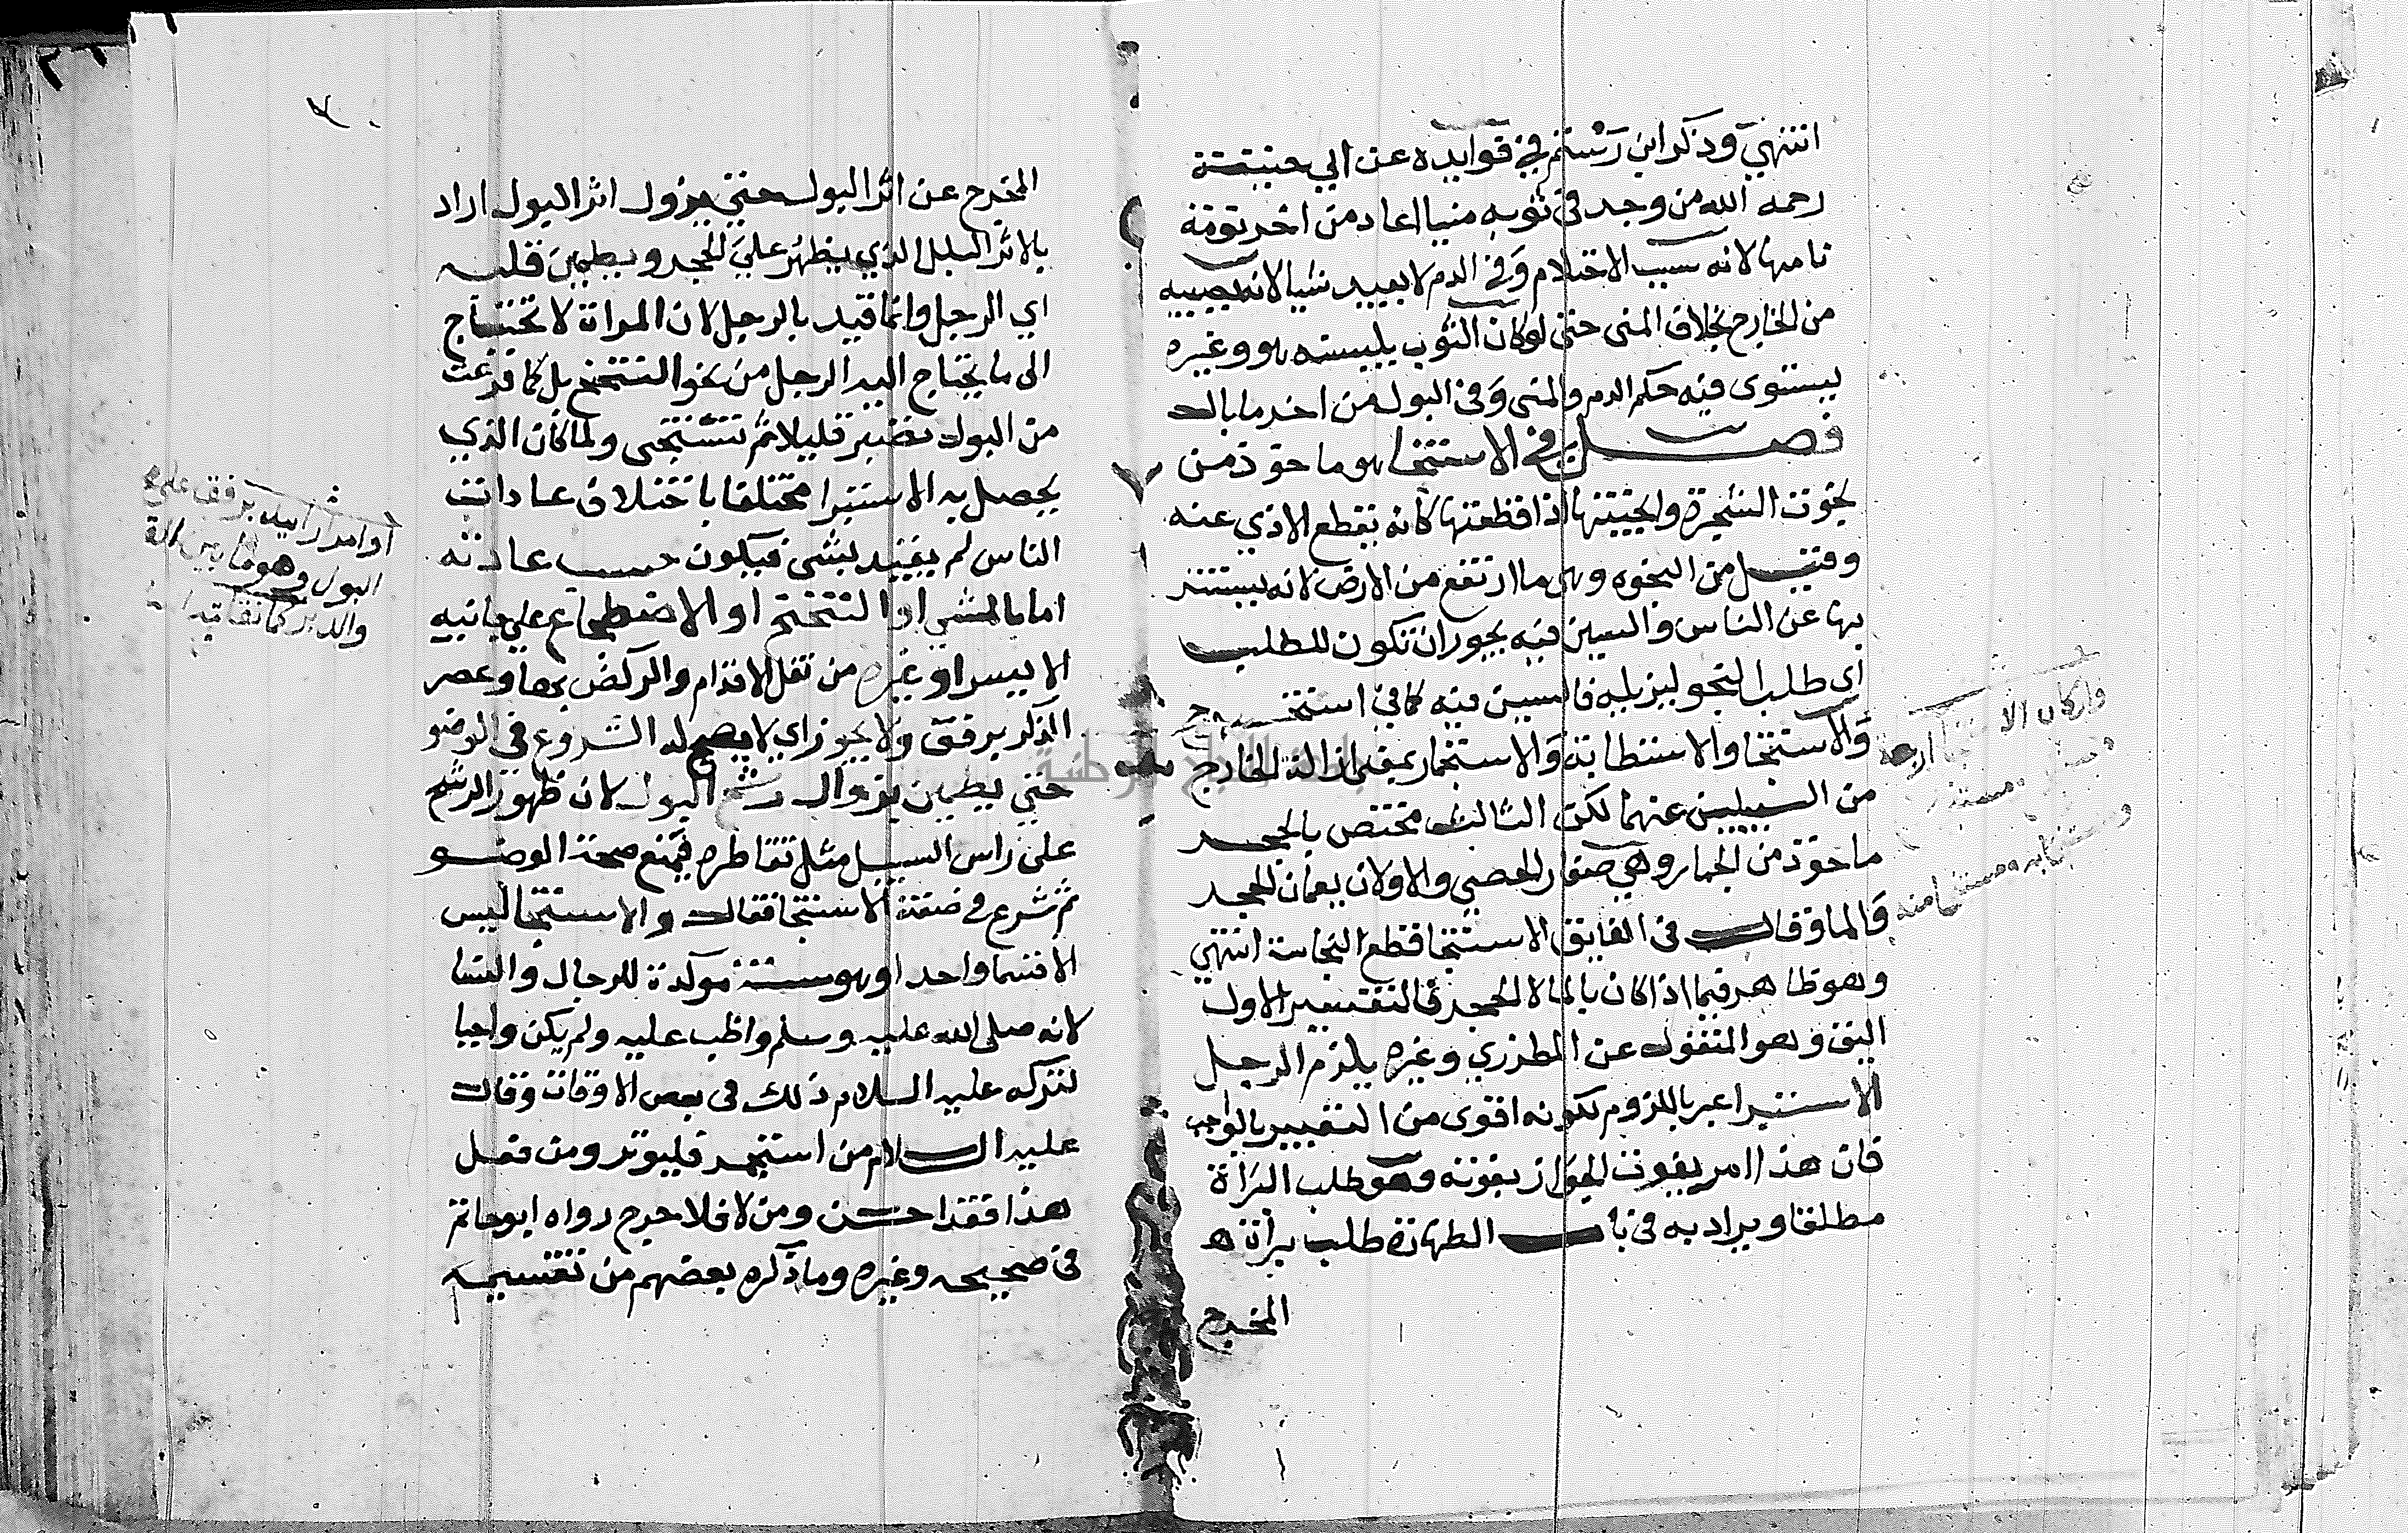 انتهي وذكر ابن رستم في فوايده عن ابي حنيفة
رحمه الله من وجد في ثوبه منيا اعاد من اخر نومة
نامها لانه سبب الاحتلام وفي الدم لا يعيد شيا لانه يصيبه
من الخارج بخلاف المنى حتى لو كان الثوب يلبسه هو وغيره
يستوى فيه حكم الدم والمنى وفي البول من اخر ما بال
فصل في الاستنجا هو ماخوذ من
نجوت الشجرة وانجيتها اذا قطعتها كانه يقطع الاذي عنه
وقيل من النجوه وهي ما ارتفع من الارض لانه يستتر
بها عن الناس والسين فيه يجوز ان تكون للطلب
اي طلب النجو ليزيله فالسين فيه كما في استخرج
والاستنجا والاستطابة والاستجمار بمعنى ازالة الخارج
من السبيلين عنهما لكن الثالث مختص بالحجر
ماخوذ من الجمار وهي صغار الحصي والاولان يعمان الحجر
والما وقال في الفايق الاستنجا قطع النجاسة انتهي
وهو ظاهر فيما اذا كان بالما لا الحجر فالتفسير الاول
اليق وهو المنقول عن المطرزي وغيره يلزم الرجل
الاستبرا عبر باللزوم لكونه اقوى من التعبير بالواجب
فان هذا امر يفوت الجواز بفوته وهو طلب البرأة
مطلقا ويراد به في باب الطهارة طلب براة
المخرج
المخرج عن اثر البول حتى يزول اثر البول اراد
بالاثر البلل الذي يظهر علي الحجر ويطمين قلبه
اي الرجل وانما قيد بالرجل لان المراة لا تحتاج
الى ما يحتاج اليه الرجل من نحو التنحنح بل كما فرغت
من البول تصبر قليلا ثم تستنجى ولما كان الذي
يحصل به الاستبرا مختلفا باختلاف عادات
الناس لم يقيد بشى فيكون حسب عادته
اما بالمشي او التنحنح او الاضطجاع علي جانبه
الايسر او غيره من نقل الاقدام والركض بها وعصر
الذكر برفق ولا يجوز اي لا يصح له الشروع في الوضو
حتي يطمين بزوال رشح البول لان ظهور الرشح
على راس السبيل مثل تقاطره فيمنع صحة الوضو
ثم شرع في صفة الاستنجا فقال والاستنجا ليس
الا قسما واحدا وهو سنة موكدة للرجال والنسا
لانه صلى الله عليه وسلم واظب عليه ولم يكن واجبا
لتركه عليه السلام ذلك في بعض الاوقات وقال
عليه السلام من استجمر فليوتر ومن فعل
هذا فقد احسن ومن لا فلا حرج رواه ابو حاتم
في صحيحه وغيره وما ذكره بعضهم من تقسيمه
واركان الاستنجا اربعة
ومستنجا به ومستنجا منه
برفق على
البول وهو ما بين
والدبر